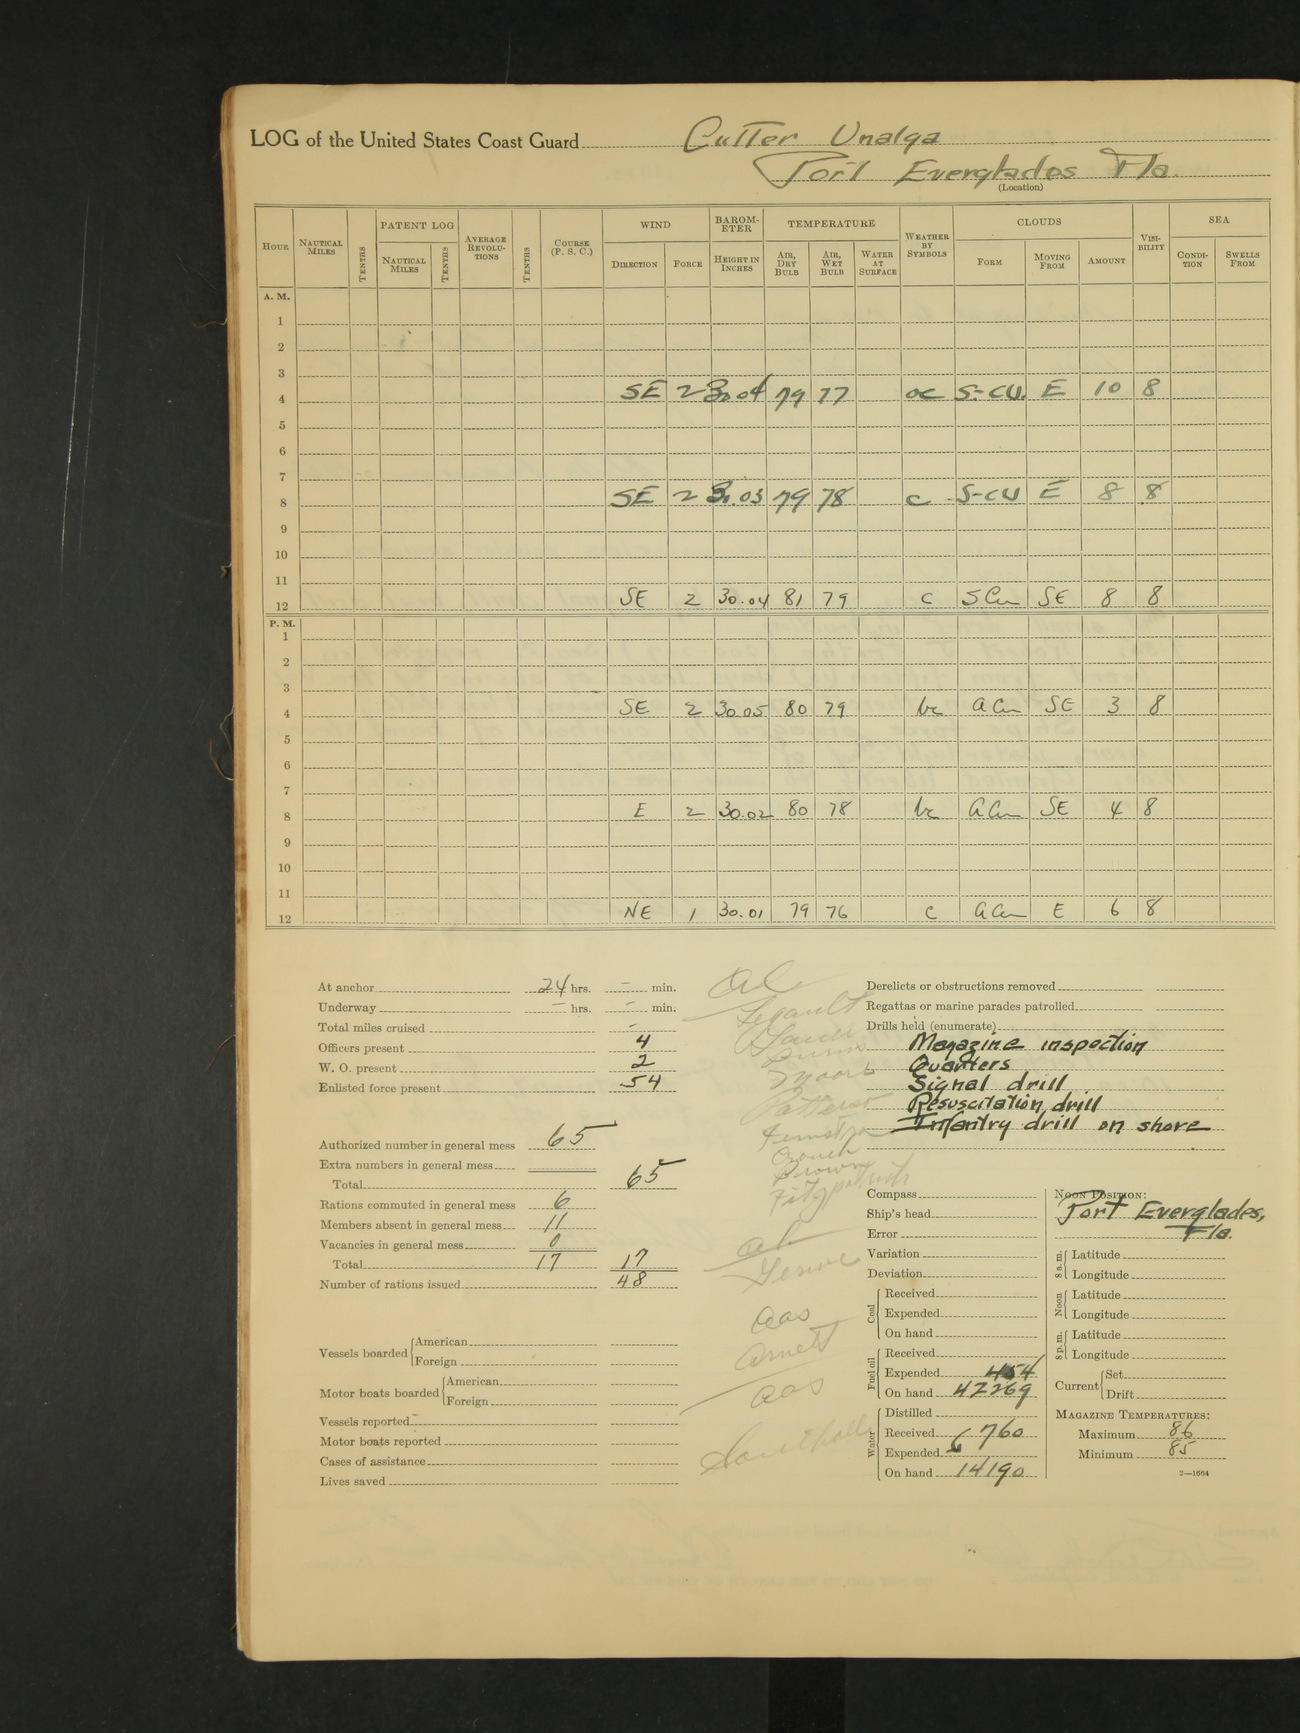 LOG of the United States Coast Guard Cutter Unalga
Port Everglades Fla.
(Location)
HOUR NAUTICAL MILES TENTHS PATENT LOG NAUTICAL MILES TENTHS AVERAGE REVOLUTIONS TENTHS COURSE (P. S. C.) WIND DIRECTION FORCE BAROMETER HEIGHT IN INCHES TEMPERATURE AIR, DRY BULB AIR, WET BULB WATER AT SURFACE WEATHER BY SYMBOLS CLOUDS FORM MOVING FROM AMOUNT VISIBILITY SEA CONDITION SWELLS FROM
A. M.
1
2
3
4 SE 2 30.04 79 77 oc S-CU. E 10 8
5
6
7
8 SE 2 30.03 79 78 c S-CU E 8 8
9
10
11
12 SE 2 30.04 81 79 c S Cu SE 8 8
P. M.
1
2
3
4 SE 2 30.05 80 79 bc A Cu SE 3 8
5
6
7
8 E 2 30.02 80 78 bc A Cu SE 4 8
9
10
11
12 NE 1 30.01 79 76 c A Cu E 6 8
At anchor 24 hrs. – min.
Underway – hrs. – min.
Total miles cruised –
Officers present 4
W. O. present 2
Enlisted force present 54
Authorized number in general mess 65
Extra numbers in general mess
Total 65
Rations commuted in general mess 6
Members absent in general mess 11
Vacancies in general mess 0
Total 17 17
Number of rations issued 48
Vessels boarded American
Foreign
Motor boats boarded American
Foreign
Vessels reported
Motor boats reported
Cases of assistance
Lives saved
Legault
Moore
Crouch
Brown
Fitzpatrick
aas
Arnett
aas
Derelicts or obstructions removed
Regattas or marine parades patrolled
Drills held (enumerate)
Magazine inspection
Quarters
Signal drill
Resuscitation drill
Infantry drill on shore
Compass
Ship's head
Error
Variation
Deviation
Coal Received
Expended
On hand
Fuel oil Received
Expended 454
On hand 42269
Water Distilled
Received 6760
Expended
On hand 14190
NOON POSITION:
Port Everglades, Fla.
8 a. m. Latitude
Longitude
Noon Latitude
Longitude
8 p. m. Latitude
Longitude
Current Set
Drift
MAGAZINE TEMPERATURES:
Maximum 86
Minimum 85
2—1664